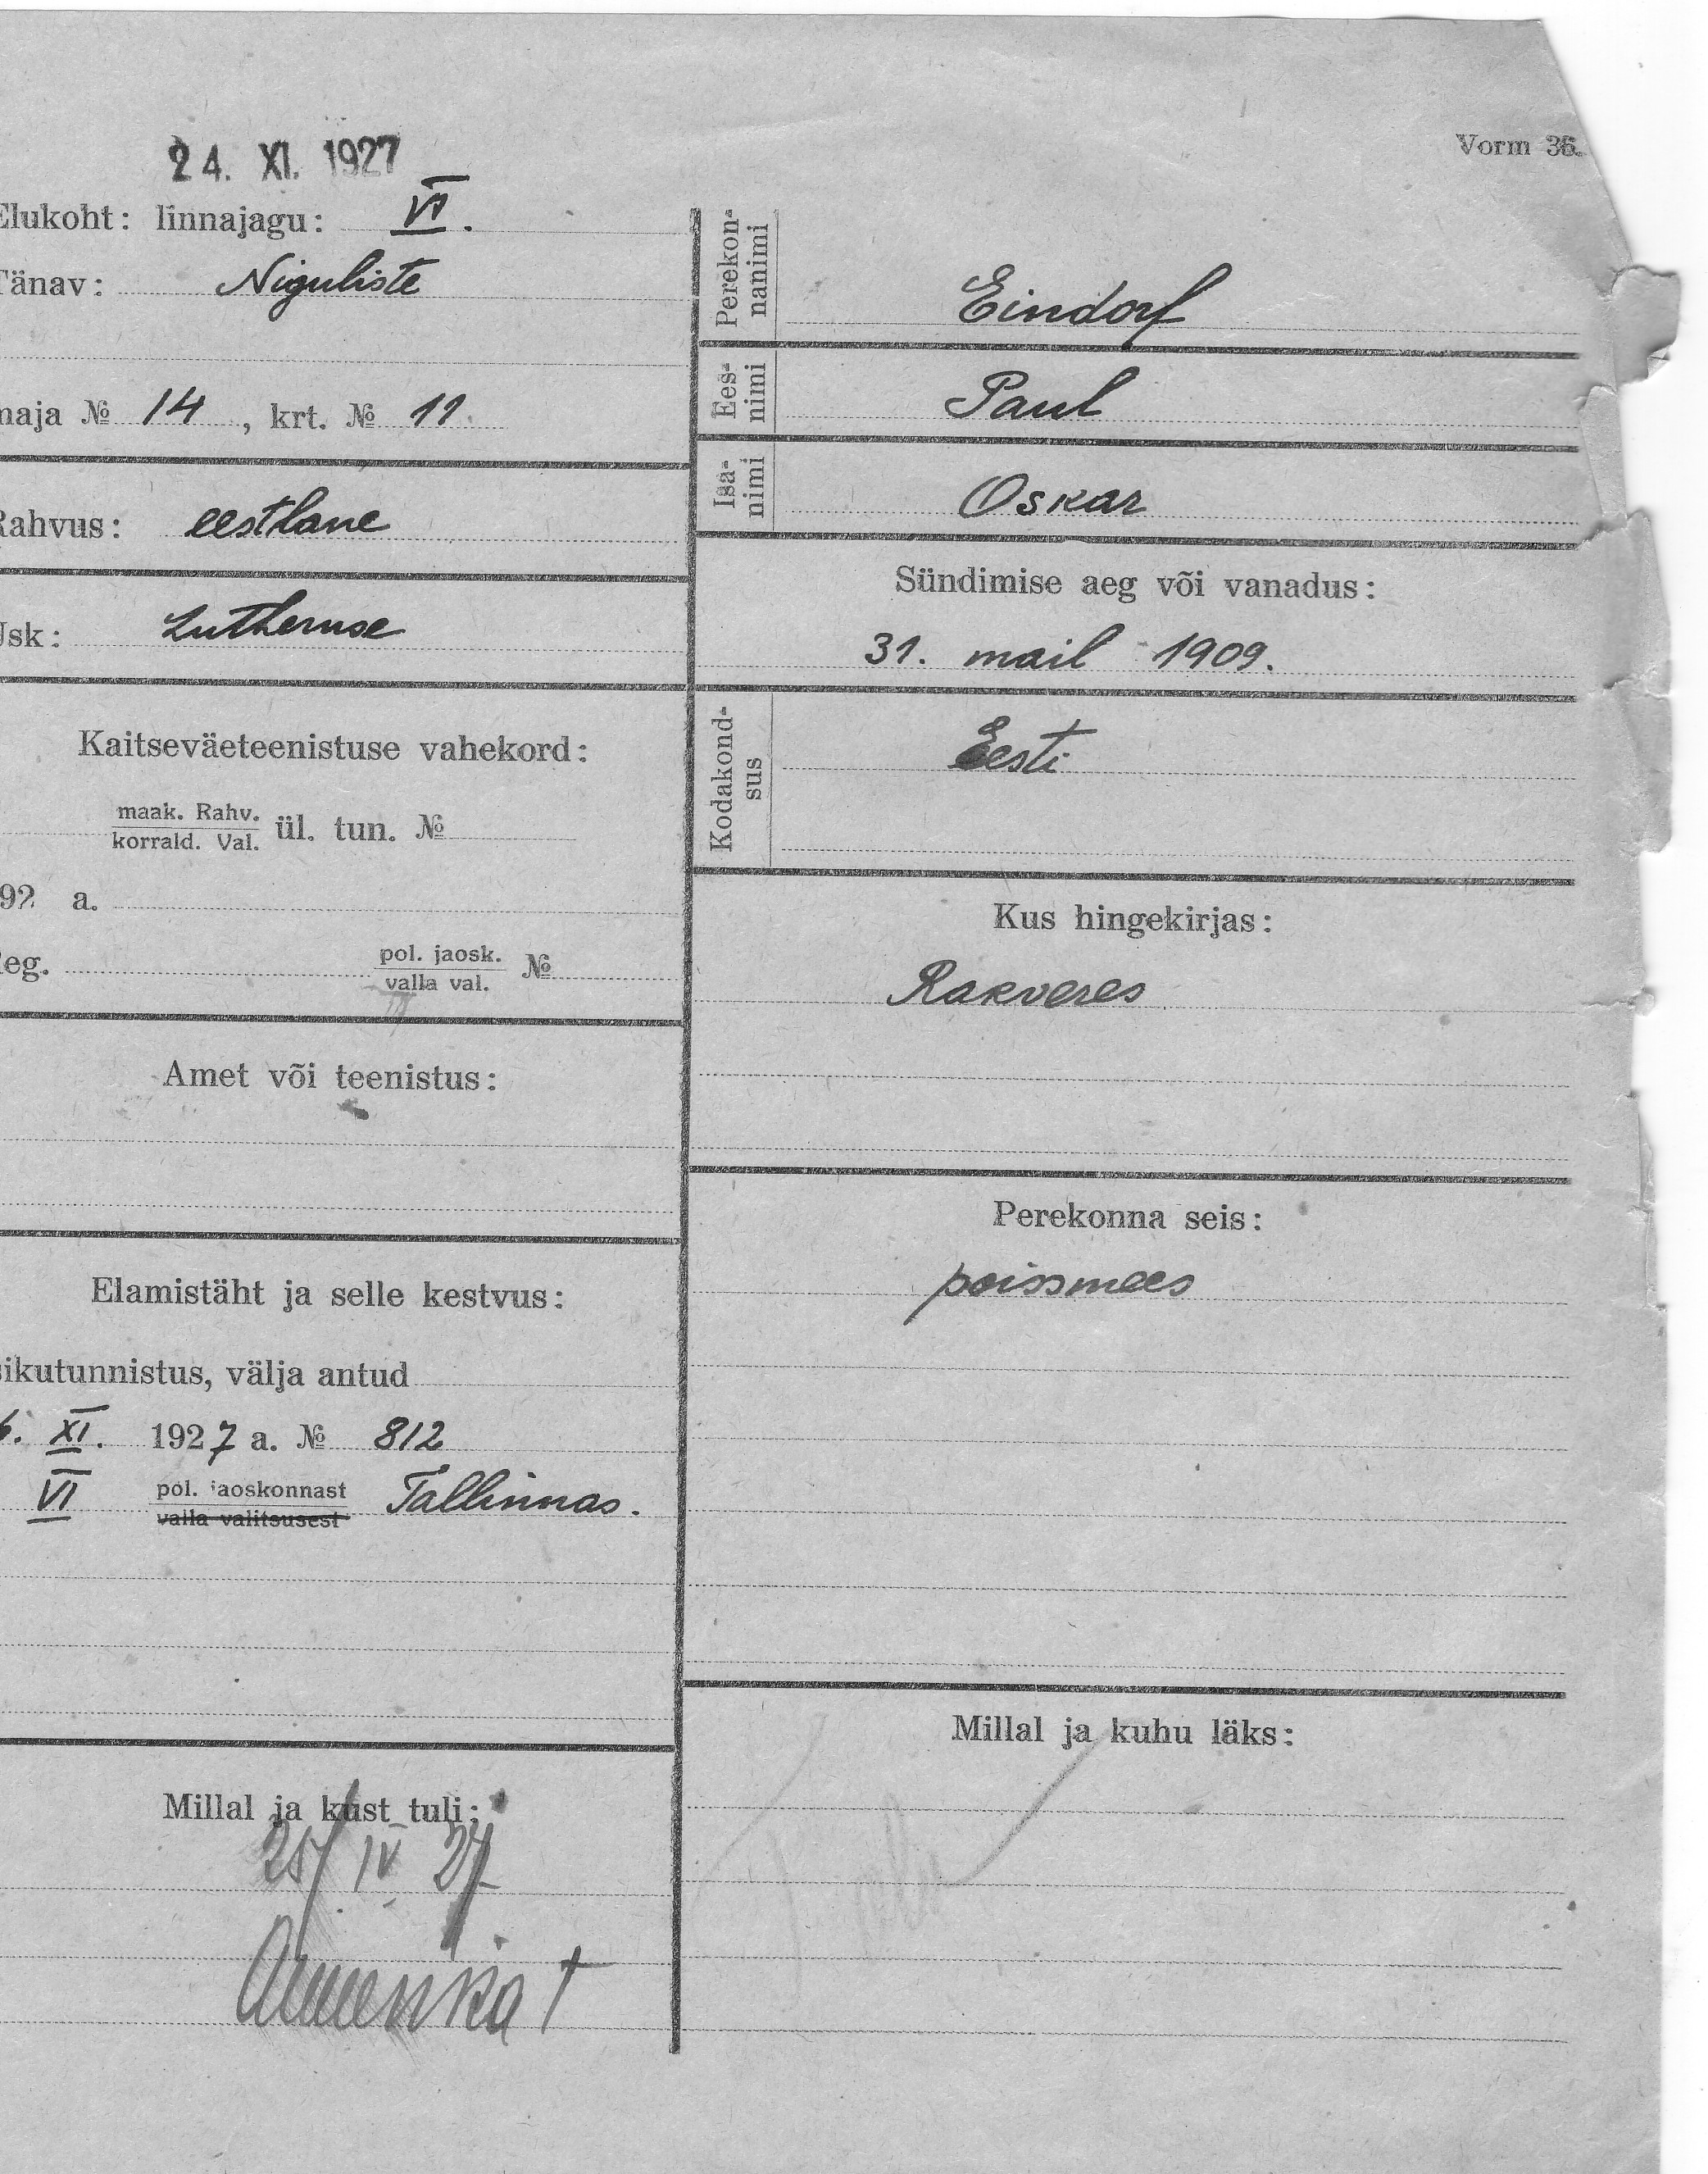 24. XI. 1927
Vorm 36.
Elukoht: linnajagu: VI.
Tänav: Niguliste
maja № 14, krt. № 11
Rahvus: eestlane
Usk: Lutheruse
Kaitseväeteenistuse vahekord:
maak. Rahv.
korrald. Val. ül. tun. №
192 a.
Reg. pol. jaosk.
valla val. №
Amet või teenistus:
Elamistäht ja selle kestvus:
sikutunnistus, välja antud
6. XI. 1927 a. № 812
VI pol. jaoskonnast Tallinnas.
valla valitsusest
Millal ja kust tuli:
25/IV 27
Perekon-
nanimi
Eindorf
Ees-
nimi
Paul
Isa-
nimi
Oskar
Sündimise aeg või vanadus:
31. mail 1909.
Kodakond-
sus
Eesti
Kus hingekirjas:
Rakveres
Perekonna seis:
poissmees
Millal ja kuhu läks: